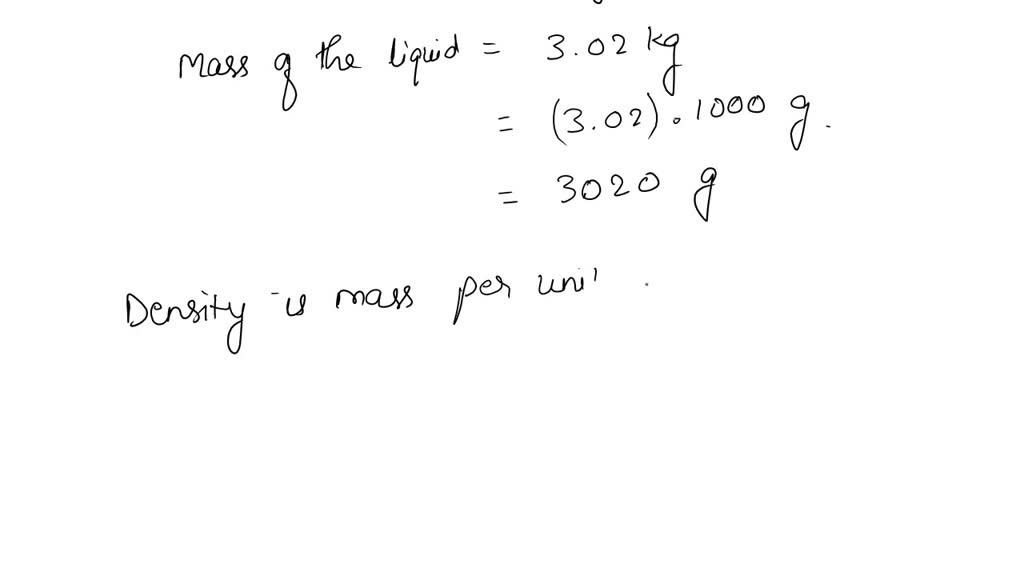 Mass of the liquid = 3.02 kg
= (3.02) . 1000 g.
= 3020 g
Density is mass per uni